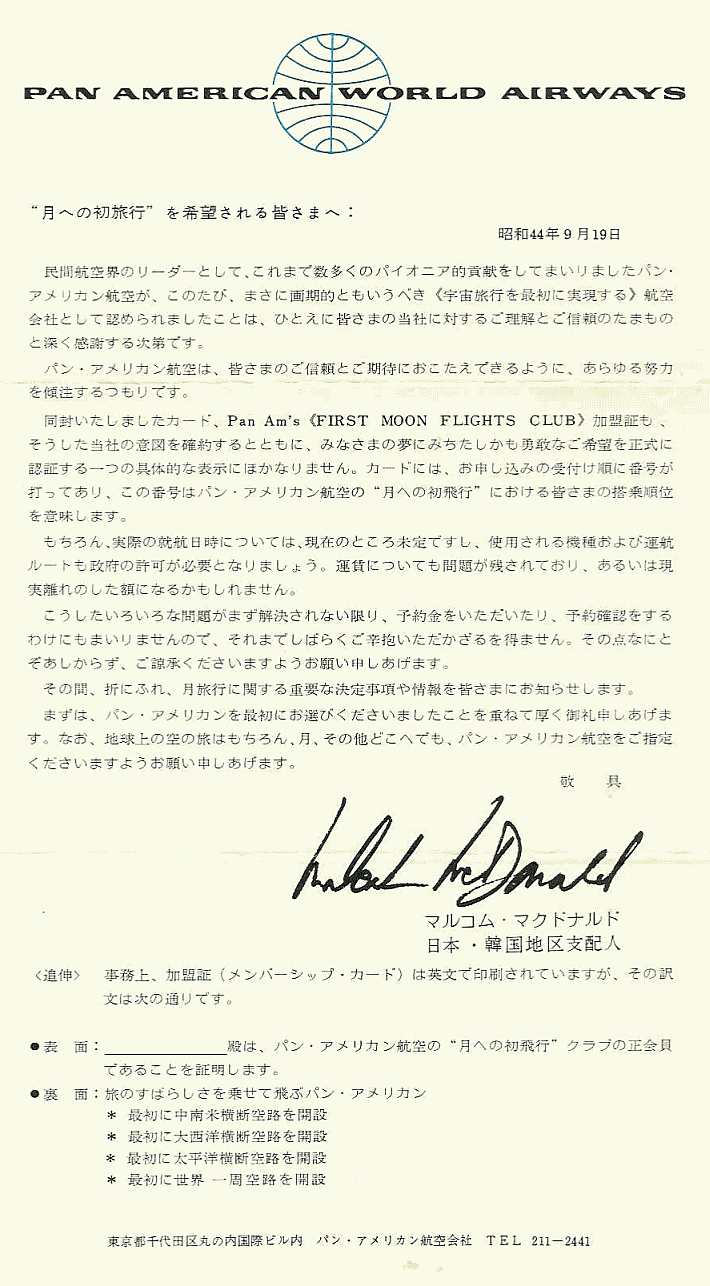 PAN AMERICAN WORLD AIRWAYS
“月への初旅行”を希望される皆さまへ：
昭和44年9月19日
民間航空界のリーダーとして、これまで数多くのパイオニア的貢献をしてまいりましたパン・
アメリカン航空が、このたび、まさに画期的ともいうべき《宇宙旅行を最初に実現する》航空
会社として認められましたことは、ひとえに皆さまの当社に対するご理解とご信頼のたまもの
と深く感謝する次第です。
パン・アメリカン航空は、皆さまのご信頼とご期待におこたえできるように、あらゆる努力
を傾注するつもりです。
同封いたしましたカード、Pan Am's《FIRST MOON FLIGHTS CLUB》加盟証も、
そうした当社の意図を確約するとともに、みなさまの夢にみちたしかも勇敢なご希望を正式に
認証する一つの具体的な表示にほかなりません。カードには、お申し込みの受付け順に番号が
打ってあり、この番号はパン・アメリカン航空の“月への初飛行”における皆さまの搭乗順位
を意味します。
もちろん、実際の就航日時については、現在のところ未定ですし、使用される機種および運航
ルートも政府の許可が必要となりましょう。運賃についても問題が残されており、あるいは現
実離れのした額になるかもしれません。
こうしたいろいろな問題がまず解決されない限り、予約金をいただいたり、予約確認をする
わけにもまいりませんので、それまでしばらくご辛抱いただかざるを得ません。その点なにと
ぞあしからず、ご諒承くださいますようお願い申しあげます。
その間、折にふれ、月旅行に関する重要な決定事項や情報を皆さまにお知らせします。
まずは、パン・アメリカンを最初にお選びくださいましたことを重ねて厚く御礼申しあげま
す。なお、地球上の空の旅はもちろん、月、その他どこへでも、パン・アメリカン航空をご指定
くださいますようお願い申しあげます。
敬　具
Malcolm McDonald
マルコム・マクドナルド
日本・韓国地区支配人
〈追伸〉　事務上、加盟証（メンバーシップ・カード）は英文で印刷されていますが、その訳
文は次の通りです。
●表　面：＿＿＿＿＿＿＿殿は、パン・アメリカン航空の“月への初飛行”クラブの正会員
であることを証明します。
●裏　面：旅のすばらしさを乗せて飛ぶパン・アメリカン
＊ 最初に中南米横断空路を開設
＊ 最初に大西洋横断空路を開設
＊ 最初に太平洋横断空路を開設
＊ 最初に世界一周空路を開設
東京都千代田区丸の内国際ビル内　パン・アメリカン航空会社　TEL 211－2441